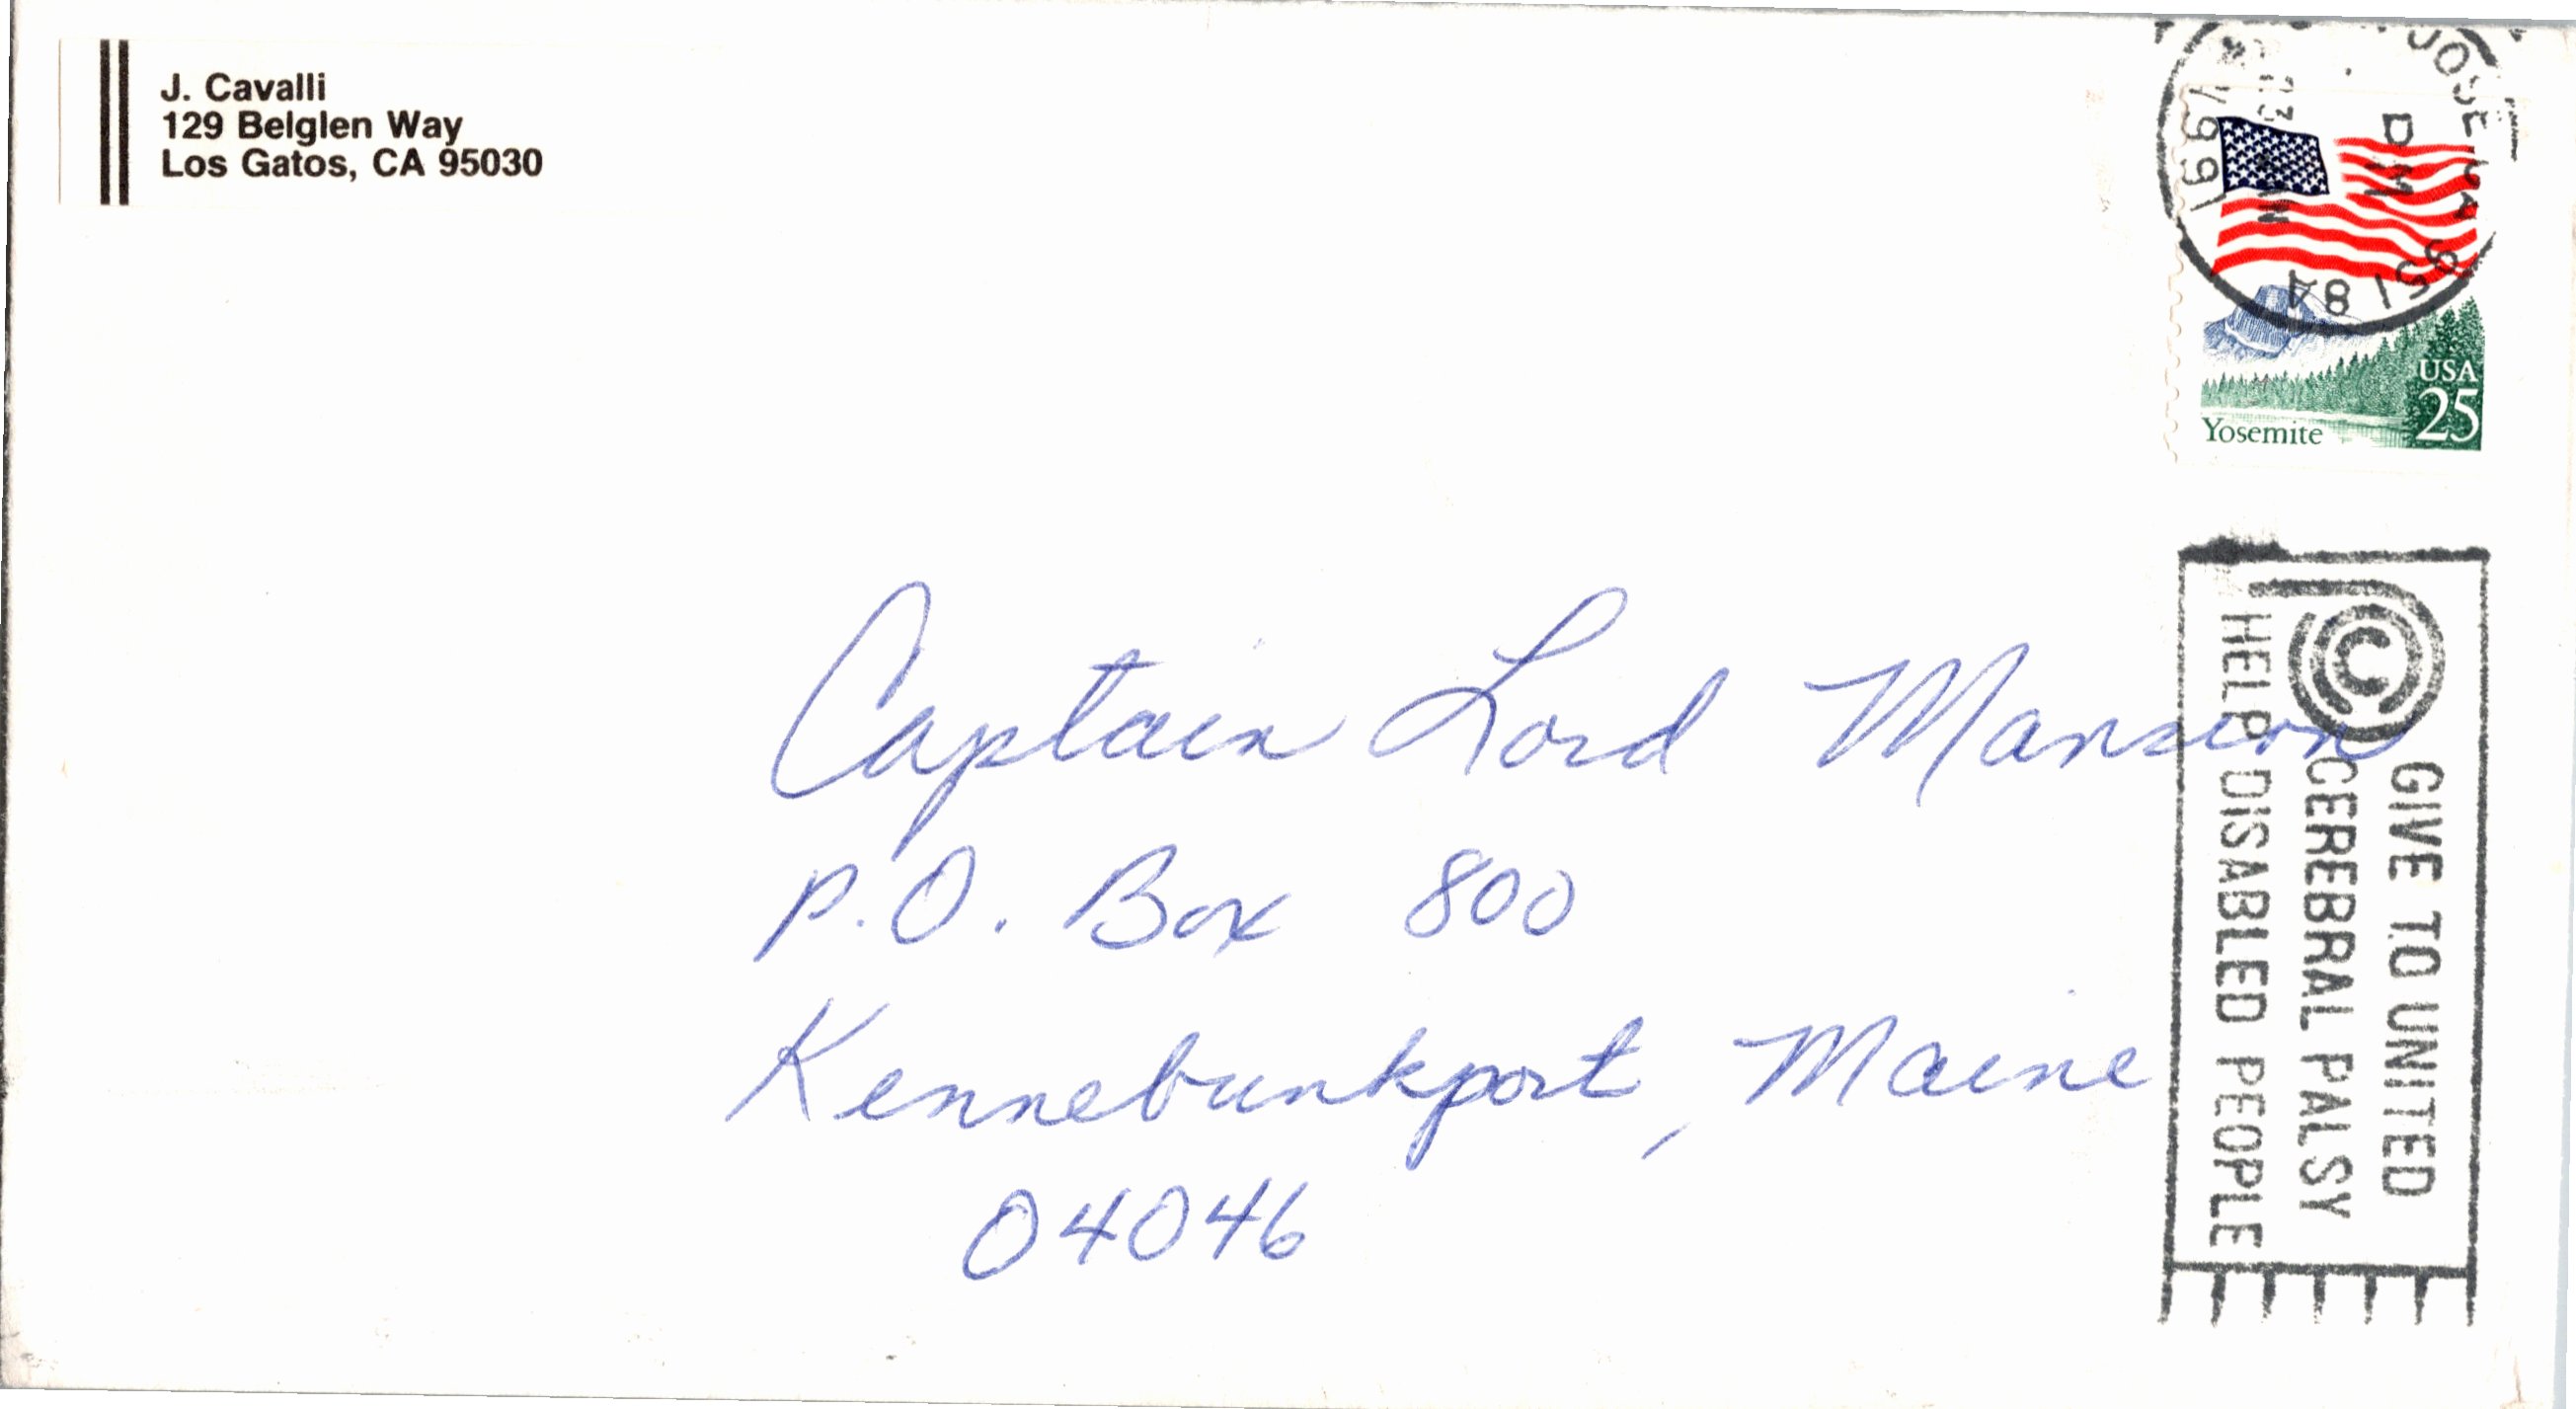 J. Cavalli
129 Belglen Way
Los Gatos, CA 95030
JOSE CA 951
PM
1991
USA
25
Yosemite
Captain Lord Mansion
P.O. Box 800
Kennebunkport, Maine
04046
GIVE TO UNITED
CEREBRAL PALSY
HELP DISABLED PEOPLE